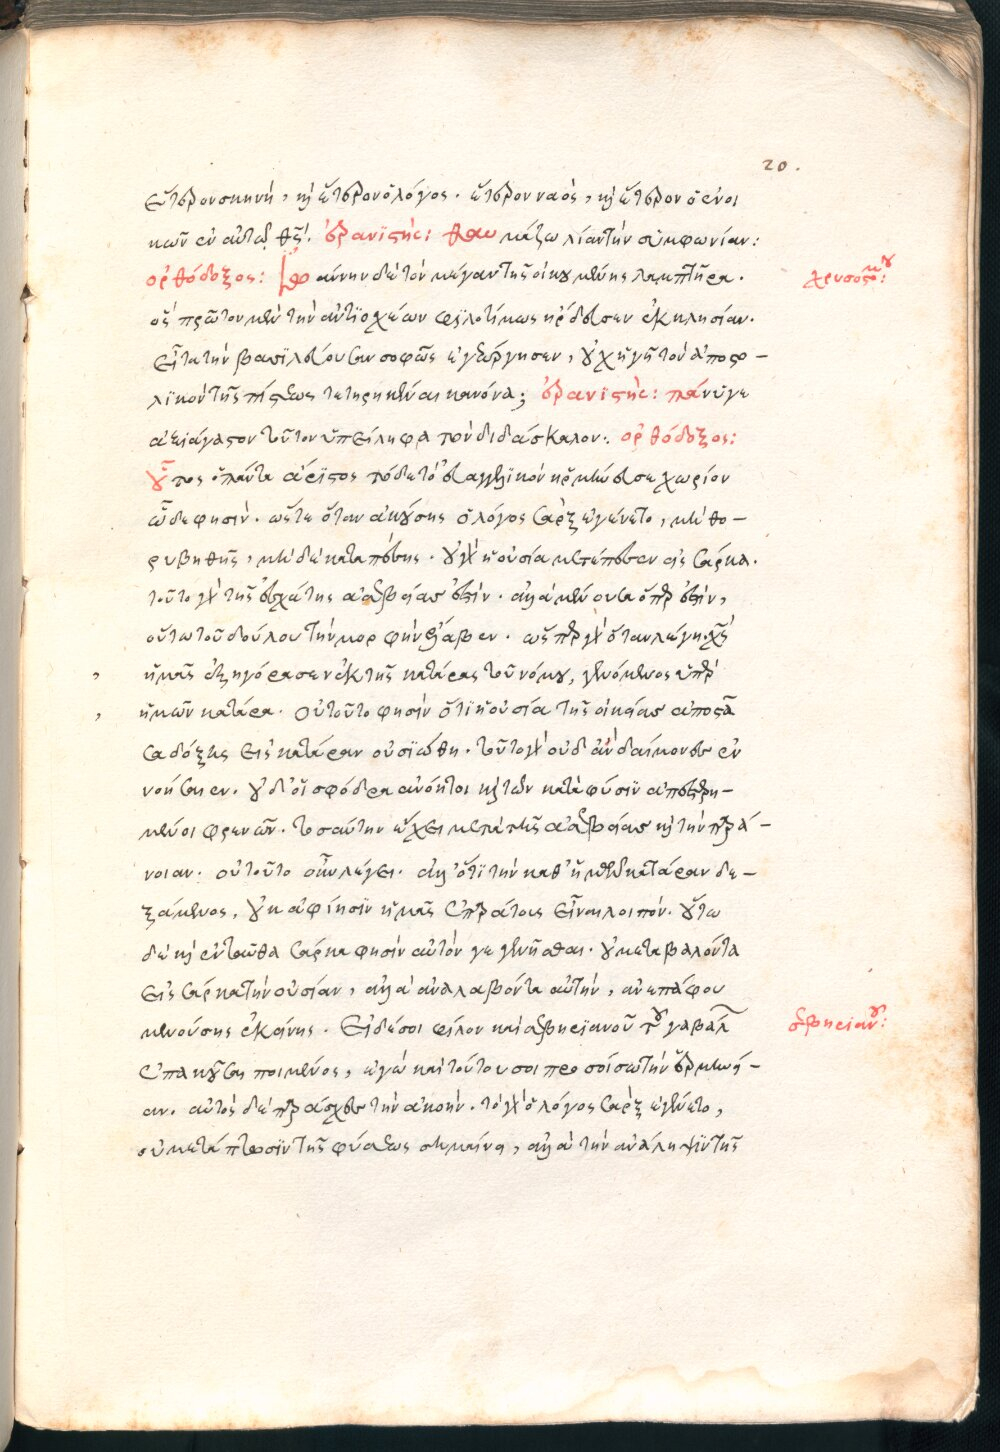 20.
ἕτερον σκηνὴ, καὶ ἕτερον ὁ λόγος. ἕτερον ναὸς, καὶ ἕτερον ὁ ἐνοι
κῶν ἐν αὐτῷ θεός. ἐρανιστής: θαυμάζω λίαν τὴν συμφωνίαν:
ὀρθόδοξος: Ἰωάννην δὲ τὸν μέγαν τῆς οἰκουμένης λαμπτῆρα.
χρυσοστόμου:
ὃς πρῶτον μὲν τὴν ἀντιοχέων φιλοτίμως ἤρδευσεν ἐκκλησίαν.
εἶτα τὴν βασιλεύουσαν σοφῶς ἐγεώργησεν, οὐχ ἡγῇ τὸν ἀποστο-
λικὸν τῆς πίστεως τετηρηκέναι κανόνα; ἐρανιστής: πάνυ γε
ἀξιάγαστον τοῦτον ὑπείληφα τὸν διδάσκαλον. ὀρθόδοξος:
οὗτος ὁ πάντα ἄριστος τόδε τὸ εὐαγγελικὸν ἡρμήνευσε χωρίον
ὧδέ φησιν. ὥστε ὅταν ἀκούσῃς ὁ λόγος σὰρξ ἐγένετο, μὴ θο-
ρυβηθῇς, μὴ δὲ καταπέσῃς. οὐ γὰρ ἡ οὐσία μετέπεσεν εἰς σάρκα.
τοῦτο γὰρ τῆς ἐσχάτης ἀσεβείας ἐστίν. ἀλλὰ μένουσα ὅπερ ἐστίν,
οὕτω τοῦ δούλου τὴν μορφὴν ἔλαβεν. ὥσπερ γὰρ ὅταν λέγῃ χριστὸς
ἡμᾶς ἐξηγόρασεν ἐκ τῆς κατάρας τοῦ νόμου, γενόμενος ὑπὲρ
ἡμῶν κατάρα. οὐ τοῦτό φησιν ὅτι ἡ οὐσία τῆς οἰκείας ἀποστᾶ
σα δόξης εἰς κατάραν οὐσιώθη. τοῦτο γὰρ οὐδ' ἂν δαίμονες ἐν
νοήσαιεν. οὐδ' οἱ σφόδρα ἀνόητοι καὶ τῶν κατὰ φύσιν ἀπεστερη-
μένοι φρενῶν. τοσαύτην ἔχει μετὰ τῆς ἀσεβείας καὶ τὴν παρά-
νοιαν. οὐ τοῦτο οὖν λέγει. ἀλλ' ὅτι τὴν καθ' ἡμῶν κατάραν δε-
ξάμενος, οὐκ ἀφίησιν ἡμᾶς ἐπαράτους εἶναι λοιπόν. οὕτω
δὲ καὶ ἐνταῦθα σάρκα φησὶν αὐτὸν γεγενῆσθαι. οὐ μεταβαλόντα
εἰς σάρκα τὴν οὐσίαν, ἀλλ' ἀναλαβόντα αὐτὴν, ἀνεπάφου
μενούσης ἐκείνης. εἰ δέ σοι φίλον καὶ σεβηριανοῦ τοῦ γαβάλων
σεβηριανοῦ:
ἐπακοῦσαι ποιμένος, ἐγὼ καὶ τούτου σοι προσοίσω τὴν ἑρμηνεί-
αν. αὐτὸς δὲ παράσχες τὴν ἀκοήν. τὸ γὰρ ὁ λόγος σὰρξ ἐγένετο,
οὐ μετάπτωσιν τῆς φύσεως σημαίνει, ἀλλὰ τὴν ἀνάληψιν τῆς